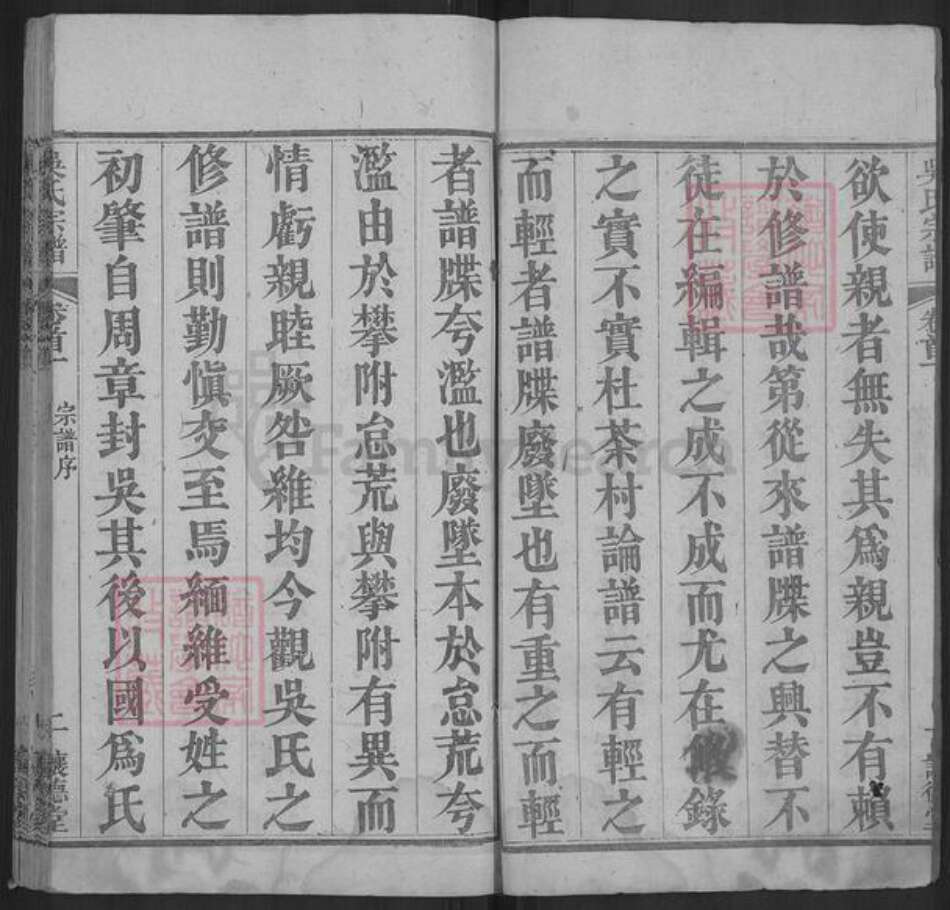 欲使親者無失其爲親豈不有賴
於修譜哉第從來譜牒之興替不
徒在編輯之成不成而尤在假錄
之實不實杜茶村論譜云有輕之
而輕者譜牒廢墜也有重之而輕
者譜牒夸濫也廢墜本於怠荒夸
濫由於攀附怠荒與攀附有異而
情虧親睦厥咎維均今觀吳氏之
修譜則勤愼交至焉緬維受姓之
初肇自周章封吳其後以國爲氏
吳氏宗譜
卷首一
宗譜序
懷德堂
FamilySearch